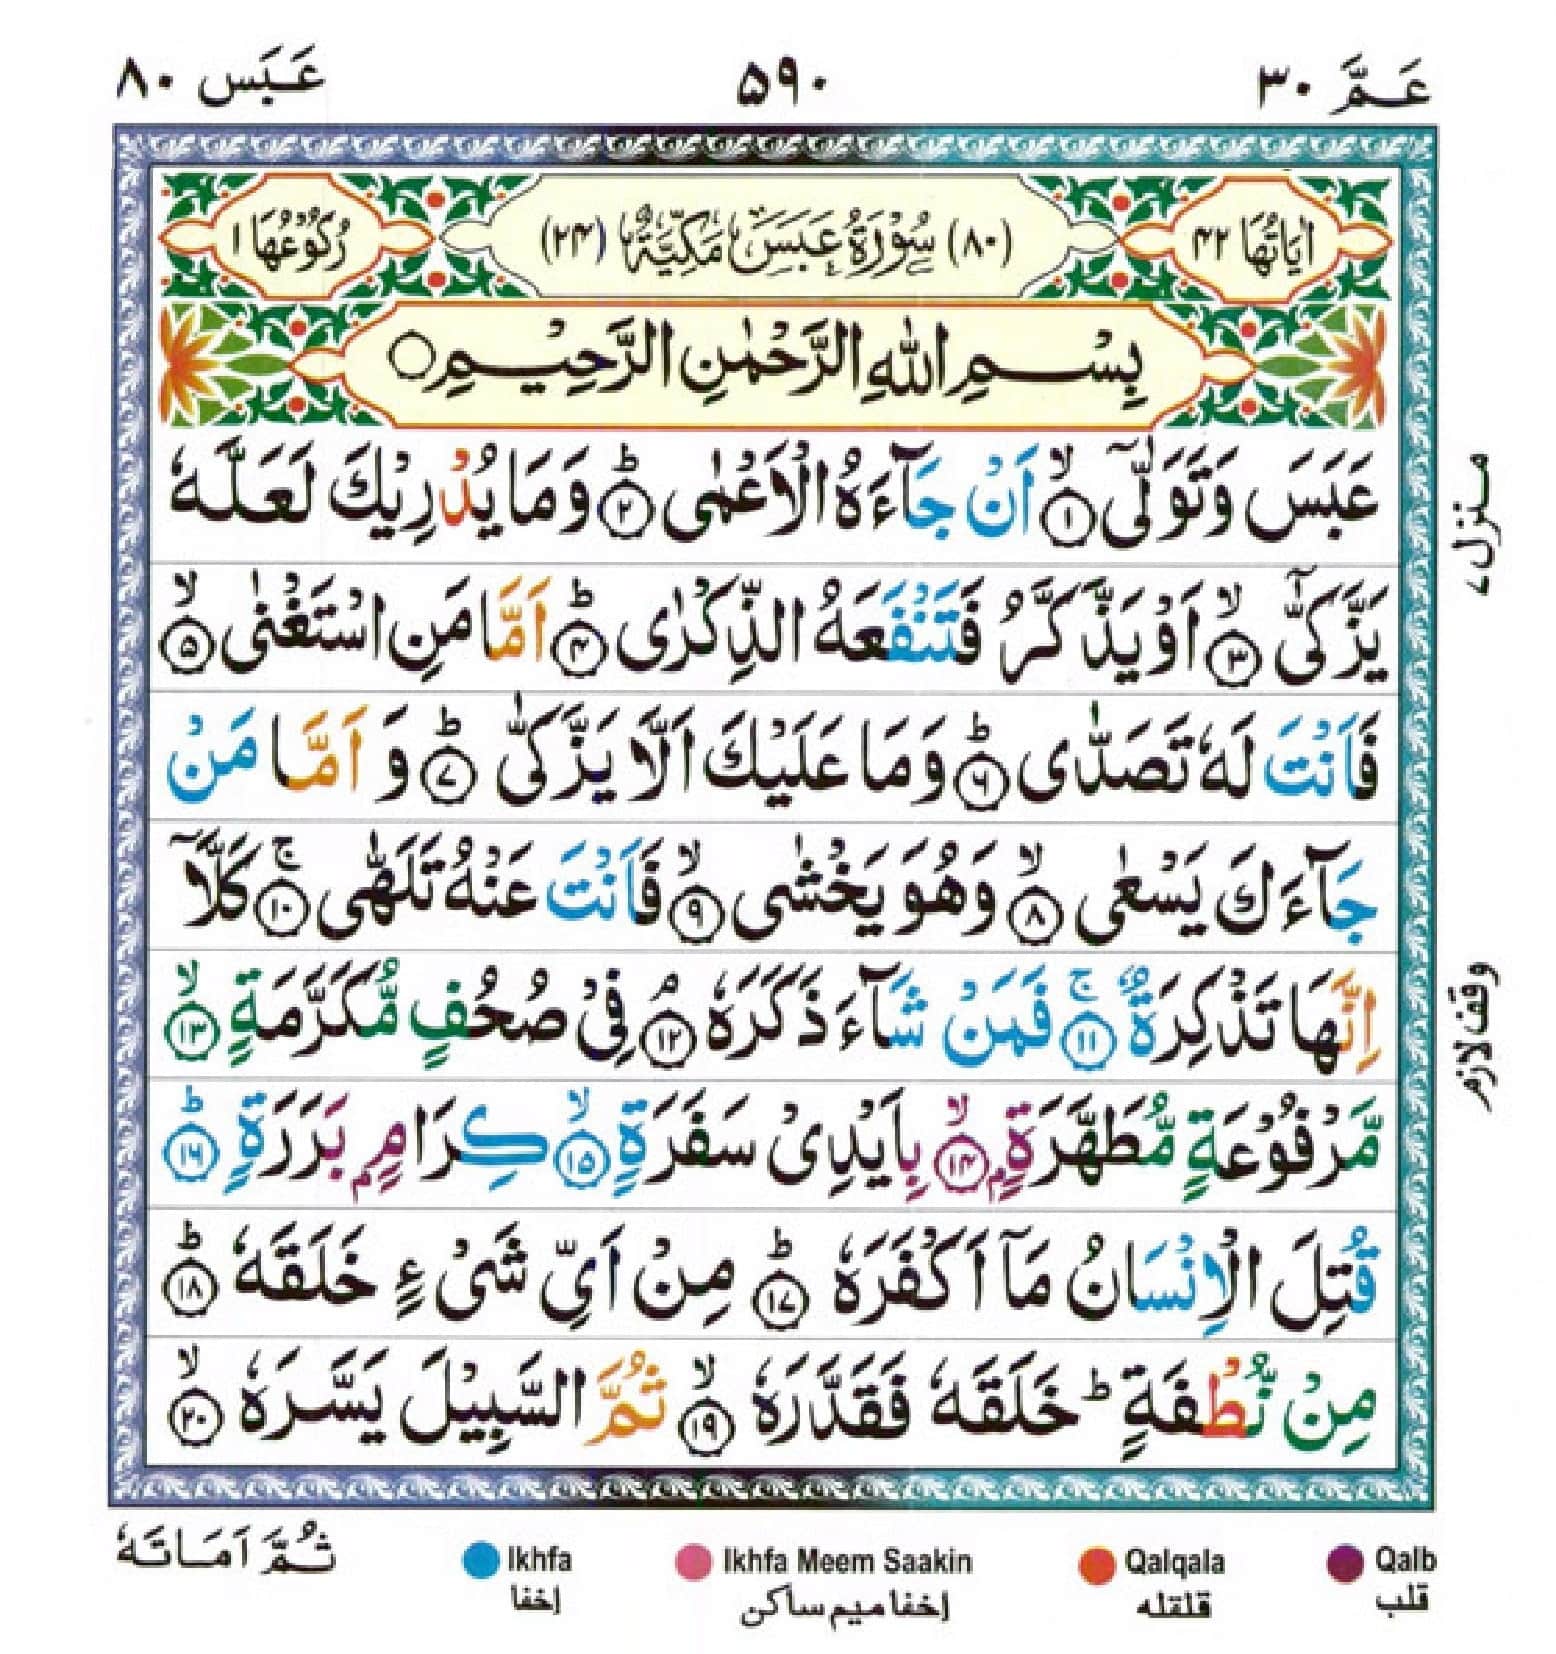 عَمَّ ٣٠
٥٩٠
عَبَسَ ٨٠
اٰيَاتُهَا ٤٢
(٨٠) سُوْرَةُ عَبَسَ مَكِّيَّةٌ (٢٤)
رُكُوْعُهَا ١
بِسْمِ اللّٰهِ الرَّحْمٰنِ الرَّحِيْمِ ○
عَبَسَ وَتَوَلّٰٓى ۙ‏﴿١﴾ اَنْ جَآءَهُ الْاَعْمٰى ؕ‏﴿٢﴾ وَمَا يُدْرِيْكَ لَعَلَّهٗ
يَزَّكّٰٓى ۙ‏﴿٣﴾ اَوْ يَذَّكَّرُ فَتَنْفَعَهُ الذِّكْرٰى ؕ‏﴿٤﴾ اَمَّا مَنِ اسْتَغْنٰى ۙ‏﴿٥﴾
فَاَنْتَ لَهٗ تَصَدّٰى ؕ‏﴿٦﴾ وَمَا عَلَيْكَ اَلَّا يَزَّكّٰى ؕ‏﴿٧﴾ وَ اَمَّا مَنْ
جَآءَكَ يَسْعٰى ۙ‏﴿٨﴾ وَهُوَ يَخْشٰى ۙ‏﴿٩﴾ فَاَنْتَ عَنْهُ تَلَهّٰى ۚ‏﴿١٠﴾ كَلَّاۤ
اِنَّهَا تَذْكِرَةٌ ۚ‏﴿١١﴾ فَمَنْ شَآءَ ذَكَرَهٗ ۘ‏﴿١٢﴾ فِىْ صُحُفٍ مُّكَرَّمَةٍ ۙ‏﴿١٣﴾
مَّرْفُوْعَةٍ مُّطَهَّرَةٍۭ ۙ‏﴿١٤﴾ بِاَيْدِىْ سَفَرَةٍ ۙ‏﴿١٥﴾ كِرَامٍۭ بَرَرَةٍ ؕ‏﴿١٦﴾
قُتِلَ الْاِنْسَانُ مَاۤ اَكْفَرَهٗ ؕ‏﴿١٧﴾ مِنْ اَىِّ شَىْءٍ خَلَقَهٗ ؕ‏﴿١٨﴾
مِنْ نُّطْفَةٍ ؕ خَلَقَهٗ فَقَدَّرَهٗ ۙ‏﴿١٩﴾ ثُمَّ السَّبِيْلَ يَسَّرَهٗ ۙ‏﴿٢٠﴾
منزل ٧
وقف لازم
ثُمَّ اَمَاتَهٗ
Ikhfa
إخفا
Ikhfa Meem Saakin
إخفا ميم ساكن
Qalqala
قلقله
Qalb
قلب